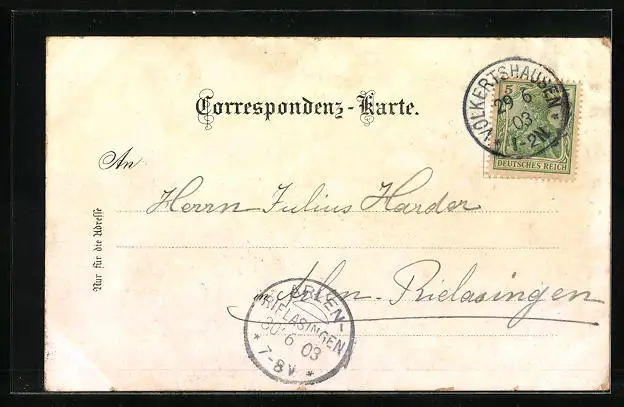 Correspondenz-Karte.
VOLKERTSHAUSEN
29 6
03
* 1-2N. *
5
DEUTSCHES REICH
An
Nur für die Adresse
Herrn Julius Harder
in Arlen-Rielasingen
ARLEN-
RIELASINGEN
30 6 03
* 7-8V *